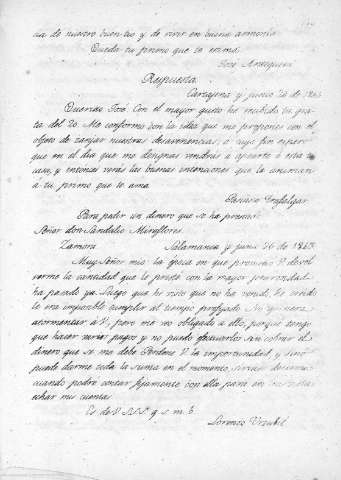 cia de nuestro buen tio y de vivir en buena armonia
Queda tu primo que te estima
José Aranguren
Respuesta.
Cartagena y junio 24 de 1863
Querido José: Con el mayor gusto he recibido tu gra-
ta del 20. Me conformo con la idea que me propones con el
objeto de zanjar nuestras desavenencias, á cuyo fin espero
que en el dia que me designas vendras á comer á esta tu
casa, y entonces verás las buenas intenciones que le animan
á tu primo que te ama.
Trafalgar
Para pedir un dinero que se ha prestado
Señor don Sandalio Miraflores.
Zamora. Salamanca y junio 26 de 1863.
Muy Señor mio: La época en que prometió V. devol
verme la cantidad que le presté con la mayor generosidad
ha pasado ya. Luego que he visto que no ha venido, he creido
le era imposible cumplir al tiempo prefijado. No quisiera
atormentar á V., pero me veo obligado á ello, porque tengo
que hacer varios pagos y no puedo efectuarlos sin cobrar el
dinero que se me debe. Perdone V. la importunidad y si no
puede darme toda la suma en el momento, sirvase decirme
cuando podré contar fijamente con ella para
echar mis cuentas.
Es de V. S. S. q. s. m. b.
Lorenzo